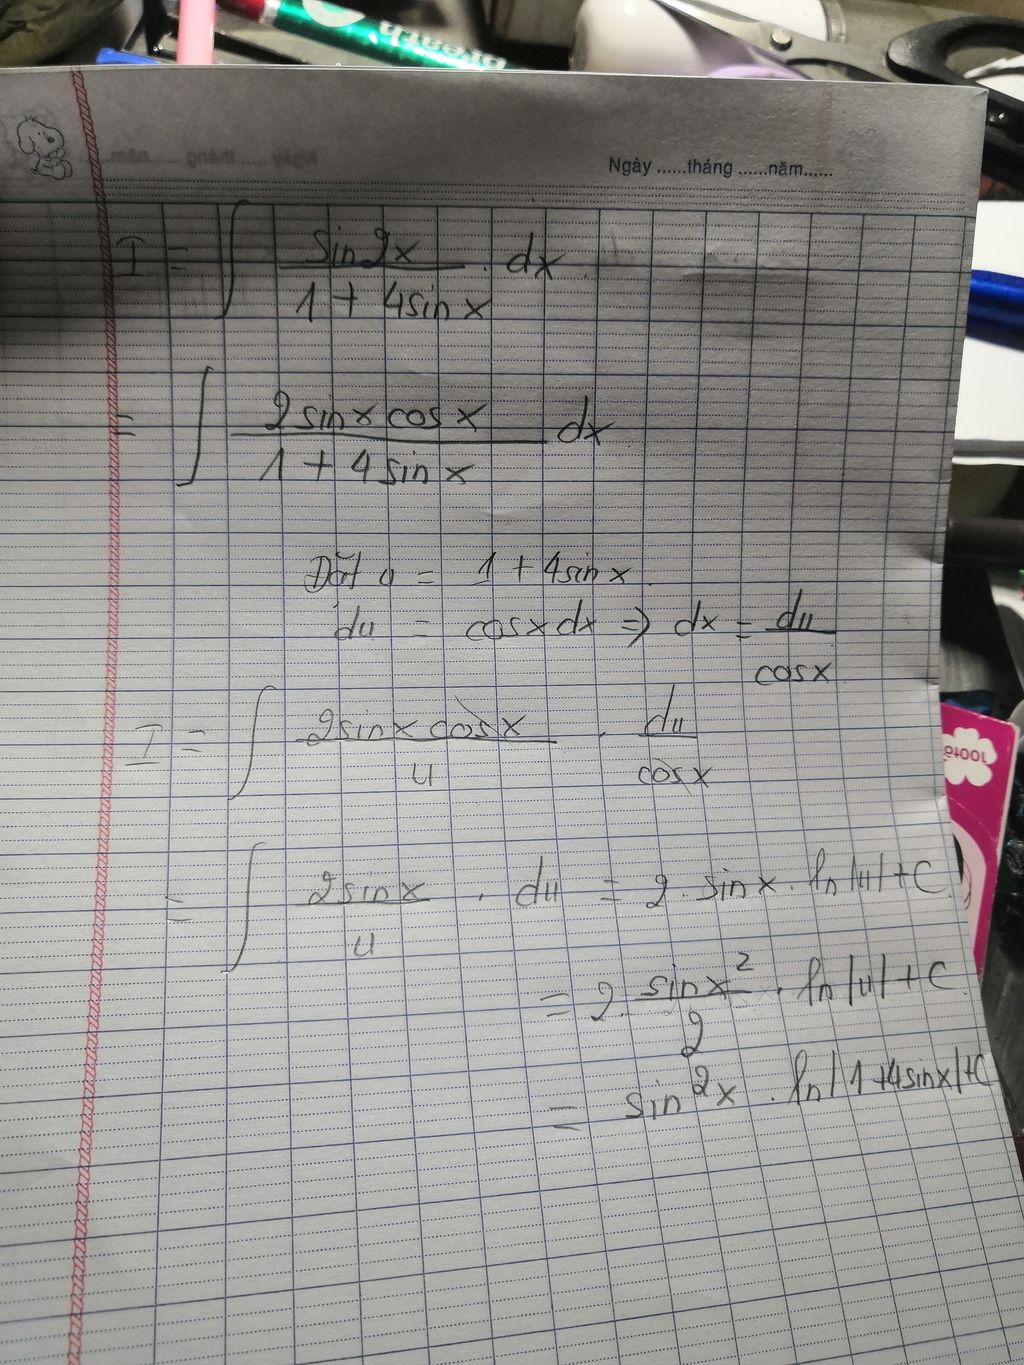 breath
Ngày ......tháng ......năm......
I = ∫ sin2x / (1 + 4sinx) . dx
= ∫ 2sinx cosx / (1 + 4sinx) dx
Đặt u = 1 + 4sinx
du = cosx dx => dx = du / cosx
I = ∫ 2sinx cosx / u . du / cosx
= ∫ 2sinx / u . du = 2 . sinx . ln|u| + C
= 2 . sinx² / 2 . ln|u| + C
= sin²x . ln|1 + 4sinx| + C